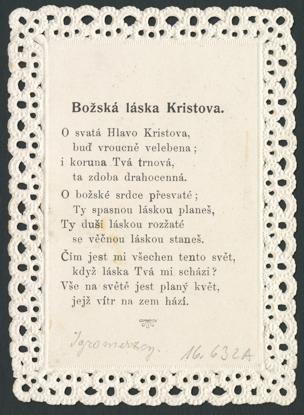 Božská láska Kristova.
O svatá Hlavo Kristova,
buď vroucně velebena;
i koruna Tvá trnová,
ta zdoba drahocenná.
O božské srdce přesvaté;
Ty spasnou láskou planeš,
Ty duší láskou rozžaté
se věčnou láskou staneš.
Čím jest mi všechen tento svět,
když láska Tvá mi schází?
Vše na světě jest planý květ,
jejž vítr na zem hází.
16.632A